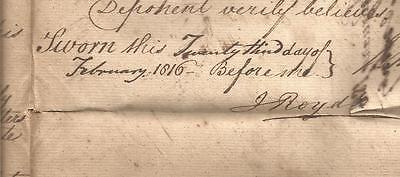 Deponent verily believes
Sworn this Twenty third day of
February 1816 - Before me }
J Royds